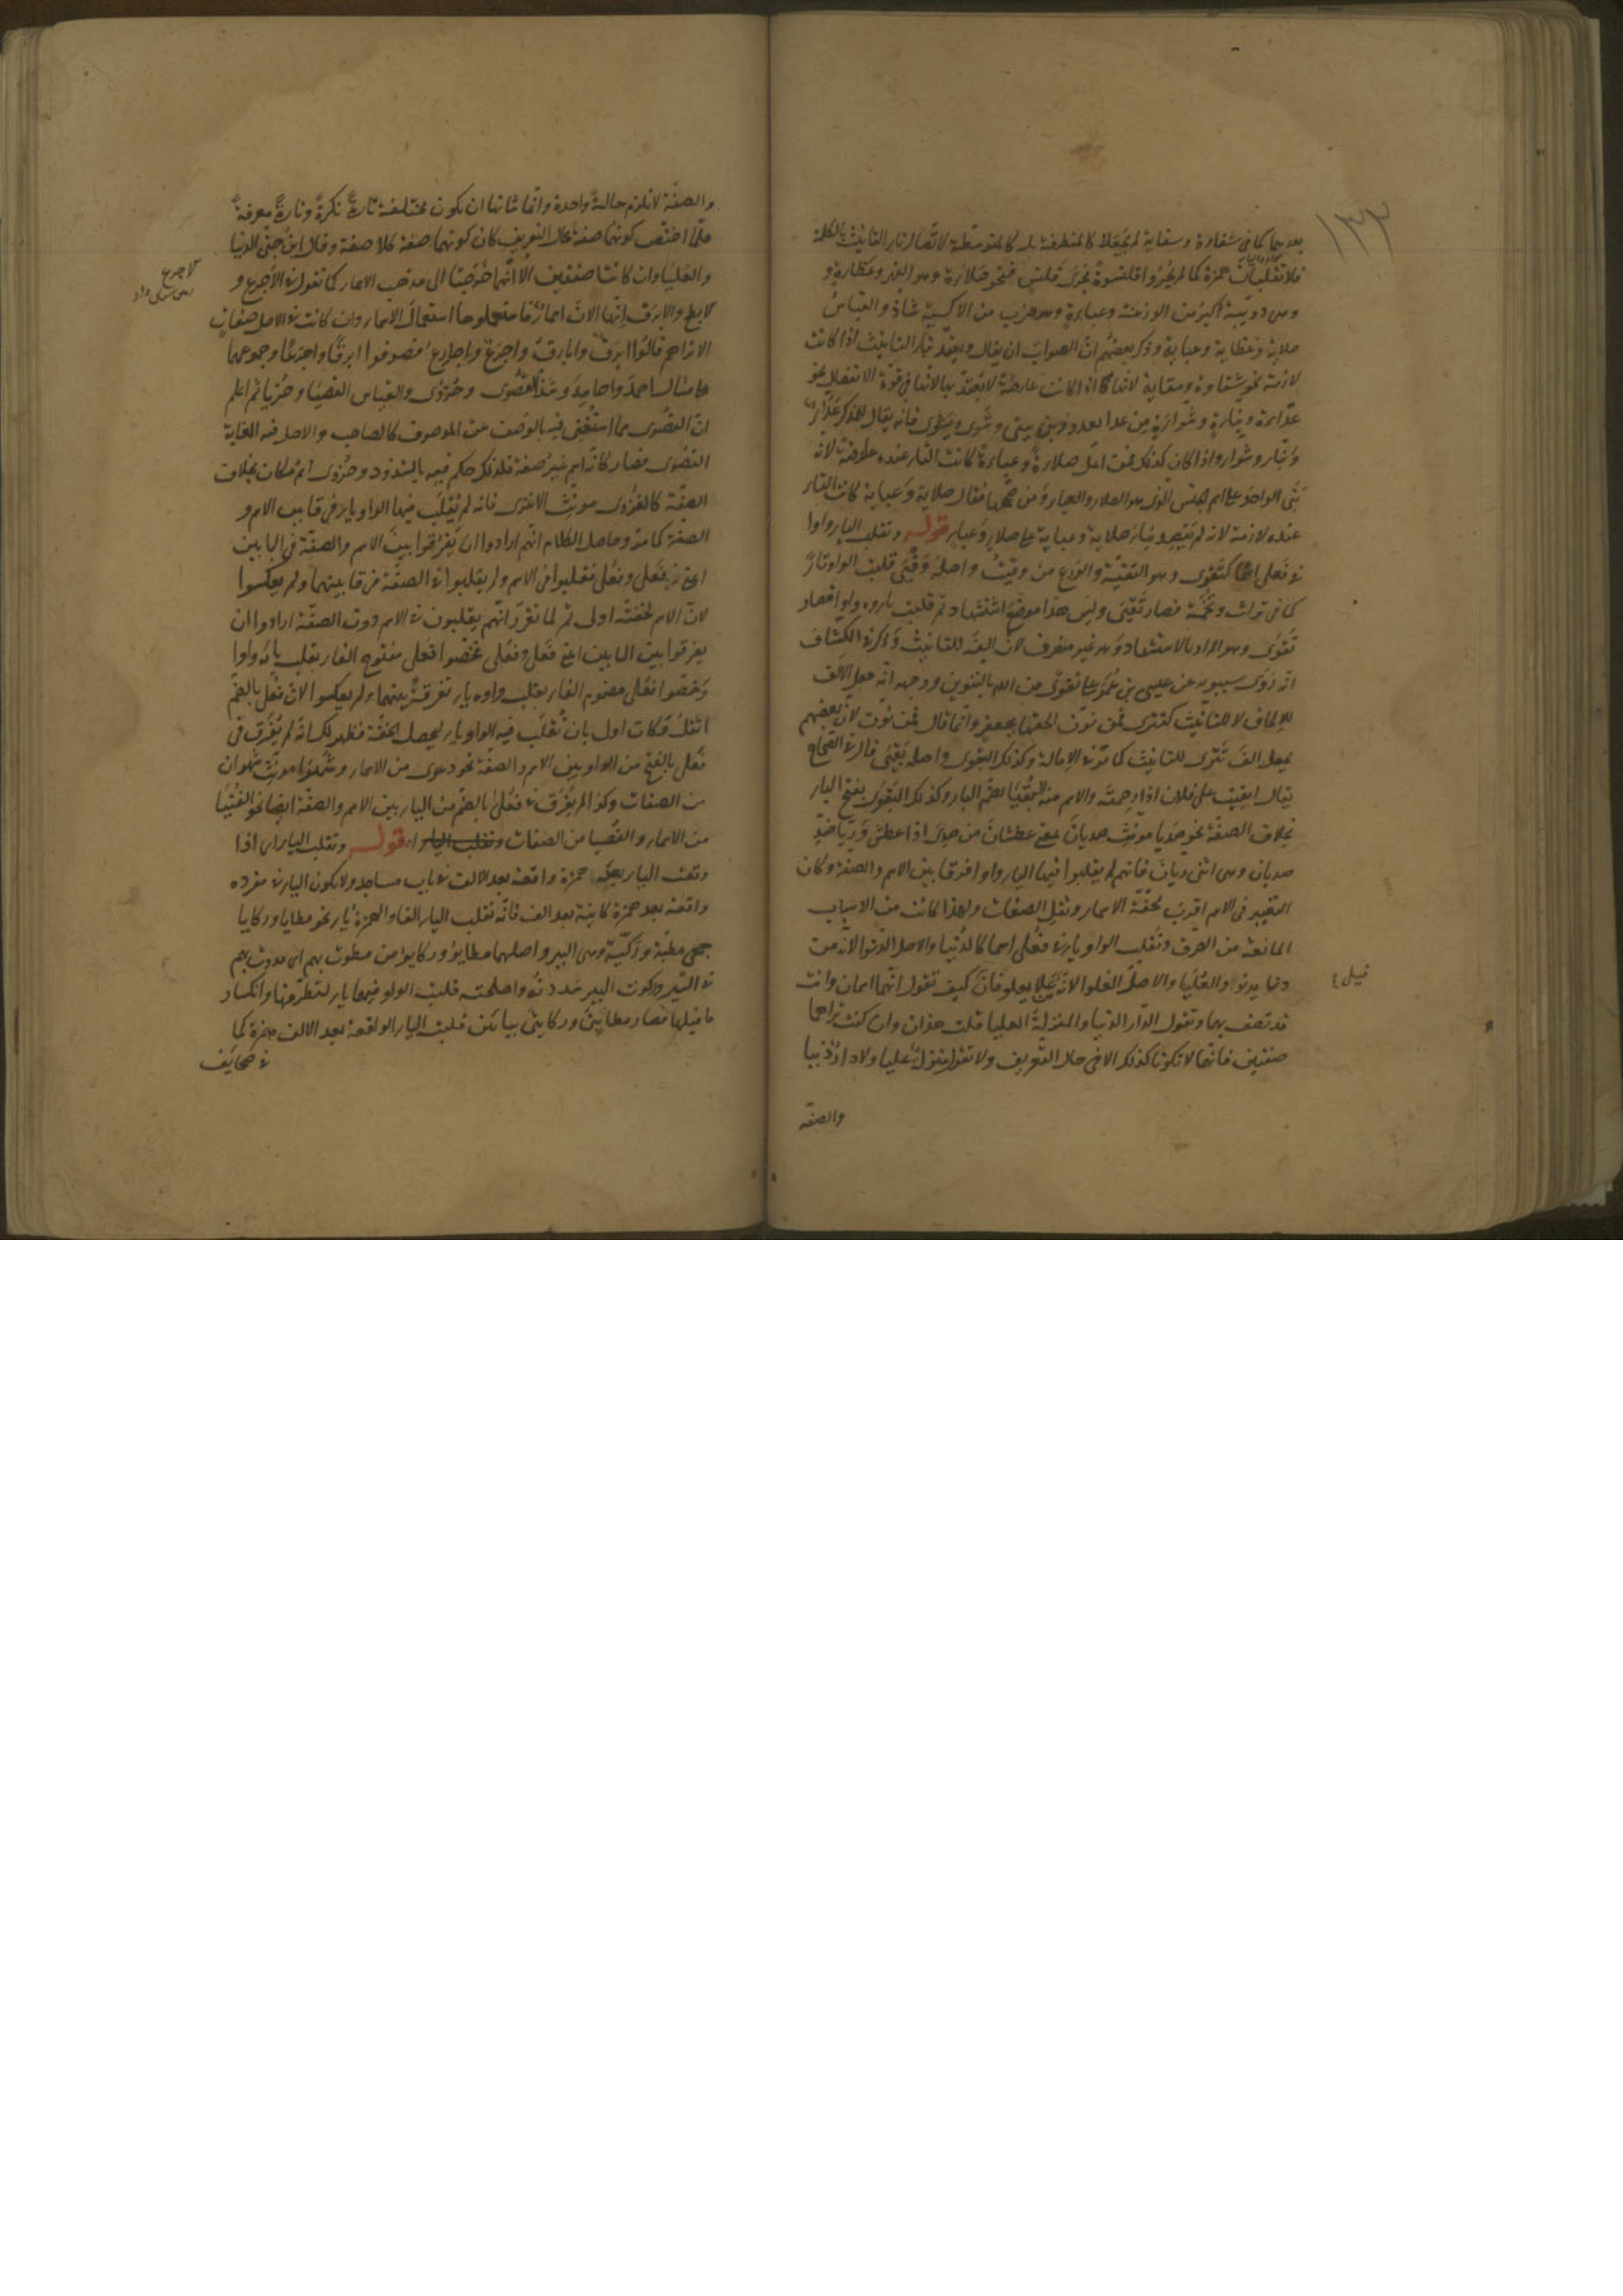 ١٣٣
بعدهما كما في شقاوة وسقاية لم يجعلا كالمتطرفة بل كالمتوسطة لاتصال تاء التأنيث بالكلمة
فلا تقلبان همزة كما لم يجروا قلنسوة مجرى قلنس فنحو صلاءة وهو الفهر وعظاءة و
وهي دويبة اكبر من الوزغة وعباءة وهو ضرب من الاكسية شاذ والقياس
صلاية وعظاية وعباية وذكر بعضهم ان الصواب ان يقال ويعتد بتاء التأنيث اذا كانت
لازمة نحو شقاوة وسقاية لانها اذا كانت عارضة لا يعتد بها لانها في قوة الانفصال نحو
وشواء واذا كان كذلك فمن قال صلاءة وعباءة كانت التاء عنده عارضة لانه
بنى الواحد على اسم الجنس الذي هو الصلاء والعباء ومن صححها فقال صلاية وعباية كانت التاء
عنده لازمة لانه لم يقصد بناء صلاية وعباية على صلاء وعباء قوله وتقلب الياء واوا
في فعلى اسما كتقوى وهو التقية والورع من وقيت واصله وقيى قلبت الواو تاء
كما في تراث وتخمة فصار تقيى وليس هذا موضع استشهاد ثم قلبت ياؤه واوا فصار
تقوى وهو المراد بالاستشهاد وهو غير منصرف لان الفه للتأنيث وذكر في الكشاف
انه روى سيبويه عن عيسى بن عمر على تقوى من الله بالتنوين ووجهه انه جعل الالف
للالحاق لا للتأنيث كتترى فمن نون الحقها بجعفر وانما قال فمن نون لان بعضهم
يجعل الف تترى للتأنيث كما مر في الامالة وكذلك البقوى واصله بقيى قال في الصحاح
يقال ابقيت على فلان اذا رحمته والاسم منه البقيا بضم الباء وكذلك البقوى بفتح الباء
بخلاف الصفة نحو صديا مونث صديان بمعنى عطشان من صدى اذا عطش وريا ضد
صديان وهي انثى ريان فانهم لم يقلبوا فيها الياء واوا فرقا بين الاسم والصفة وكان
التغيير في الاسم اقرب لخفة الاسماء وثقل الصفات ولهذا كانت من الاسباب
المانعة من الصرف وتقلب الواو ياء في فعلى اسما كالدنيا والاصل الدنوا لانه من
دنا يدنو والعليا والاصل العلوا لانه من علا يعلو فان قيل كيف تقول انهما اسمان وانت
قد تصف بهما وتقول الدار الدنيا والمنزلة العليا قلت هذان وان كنت تراهما
صفتين فانهما لا تكونا كذلك الا في حال التعريف ولا تقول منزلة عليا ولا دار دنيا
والصفة
والصفة لا تلزم حالة واحدة وانما شانها ان تكون مختلفة تارة نكرة وتارة معرفة
فلما اختص كونهما صفة بحال التعريف كان كونهما صفة كلا صفة وقال ابن جني الدنيا
والعليا وان كانتا صفتين الا انهما خرجتا الى مذهب الاسماء كما تقول في الاجرع و
الابطح والابرق انها الان اسماء استعملوها استعمال الاسماء وان كانت في الاصل صفات
الا تراهم قالوا ابرق وابارق واجرع واجارع فصرفوا ابرقا واجرعا وجمعوهما
على مثال احمد واحامد وشذ القصوى وحزوى والقياس القصيا وحزيا ثم اعلم
ان القصوى مما استغنى فيه بالوصف عن الموصوف كالصاحب والاصل فيه الغاية
القصوى فصار كانه اسم غير صفة فلذلك حكم فيه بالشذوذ وحزوى اسم مكان بخلاف
الصفة كالغزوى مونث الاغزى فانه لم تقلب فيها الواو ياء فرقا بين الاسم و
الصفة كما مر وحاصل الكلام انهم ارادوا ان يفرقوا بين الاسم والصفة في البابين
اعني فعلى وفعلى فقلبوا في الاسم ولم يقلبوا في الصفة فرقا بينهما ولم يعكسوا
لان الاسم لخفته اولى ثم لما تقرر انهم يقلبون في الاسم دون الصفة ارادوا ان
يفرقوا بين البابين اعني فعلى وفعلى فخصوا فعلى مفتوح الفاء بقلب يائه واوا
وخصوا فعلى مضموم الفاء بقلب واوه ياء تفرقة بينهما ولم يعكسوا لان فعلى بالضم
اثقل فكانت اولى بان تقلب فيه الواو ياء ليحصل الخفة فظهر لك انه لم يفرق في
فعلى بالفتح من الواو بين الاسم والصفة نحو دعوى من الاسماء وشهوى مونث شهوان
من الصفات وكذا لم يفرق في فعلى بالضم من الياء بين الاسم والصفة ايضا نحو الفتيا
من الاسماء والقصيا من الصفات قوله وتقلب الياء اي اذا
وقعت الياء بعد همزة واقعة بعد الالف في باب مساجد ولا تكون الياء في مفرده
واقعة بعد همزة كاينة بعد الف فانه تقلب الياء الفا والهمزة ياء نحو مطايا وركايا
جمعي مطية وركية وهي البير واصلهما مطايو وركايو من مطوت بهم اي مددت بهم
في السير وركوت البير شددته واصلحته قلبت الواو فيهما ياء لتطرفها وانكسار
ما قبلها فصار مطايي وركايي بيائين قلبت الياء الواقعة بعد الالف همزة كما
في صحايف
الاجرع